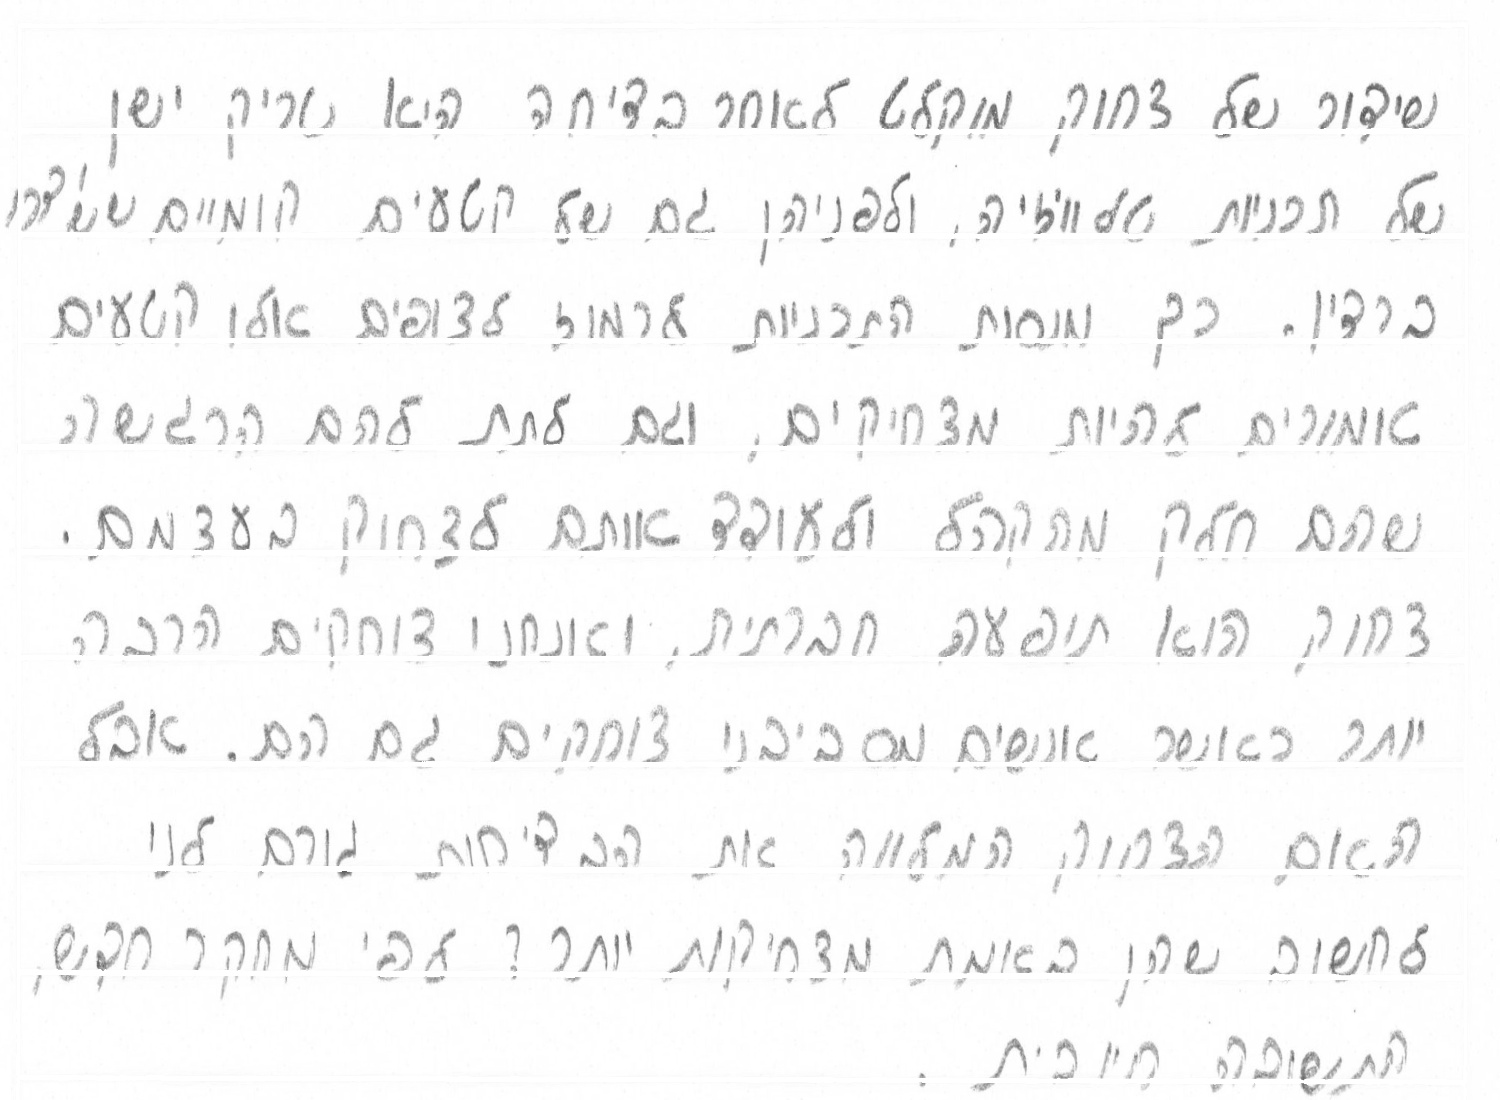 שיפור של צחוק מוקלט לאחר בדיחה היא טריק ישן
של תכניות טלוויזיה, ולפניהן גם של קטעים קומיים ששודרו
ברדיו. כך מנסות התכניות לרמוז לצופים אילו קטעים
אמורים להיות מצחיקים, וגם לתת להם הרגשה
שהם חלק מהקהל ולעודד אותם לצחוק בעצמם.
צחוק הוא תופעה חברתית, ואנחנו צוחקים הרבה
יותר כאשר אנשים מסביבנו צוחקים גם הם. אבל
האם הצחוק המלווה את הבדיחות גורם לנו
לחשוב שהן באמת מצחיקות יותר? לפי מחקר חדש,
התשובה חיובית.